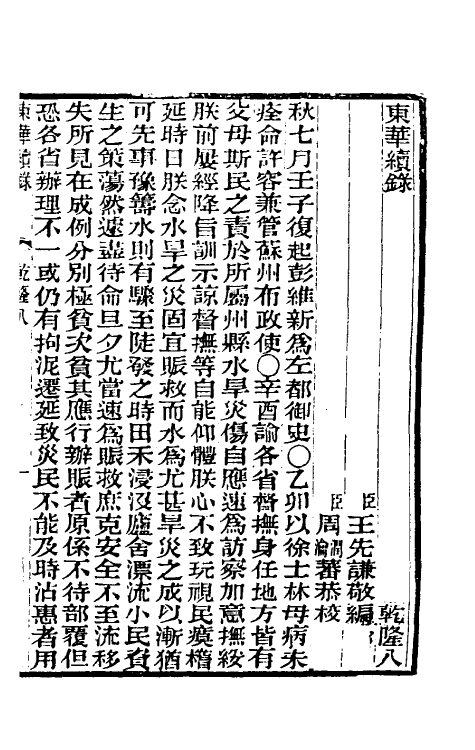 東華續錄
乾隆八
臣王先謙敬編
臣周潤蕃
周瀹蕃恭校
秋七月壬子復起彭維新爲左都御史○乙卯以徐士林母病未
痊命許容兼管蘇州布政使○辛酉諭各省督撫身任地方皆有
父母斯民之責於所屬州縣水旱災傷自應速爲訪察加意撫綏
朕前屢經降旨訓示諒督撫等自能仰體朕心不致玩視民瘼稽
延時日朕念水旱之災固宜賑救而水爲尤甚旱災之成以漸猶
可先事豫籌水則有驟至陡發之時田禾浸沒廬舍漂流小民資
生之策蕩然速盡待命旦夕尤當速爲賑救庶克安全不至流移
失所見在成例分別極貧次貧其應行辦賑者原係不待部覆但
恐各省辦理不一或仍有拘泥遷延致災民不能及時沾惠者用
東華續錄 乾隆八 一